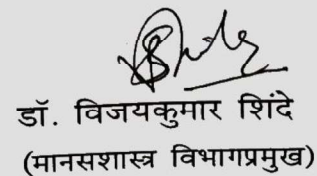 डॉ. विजयकुमार शिंदे
(मानसशास्त्र विभागप्रमुख)